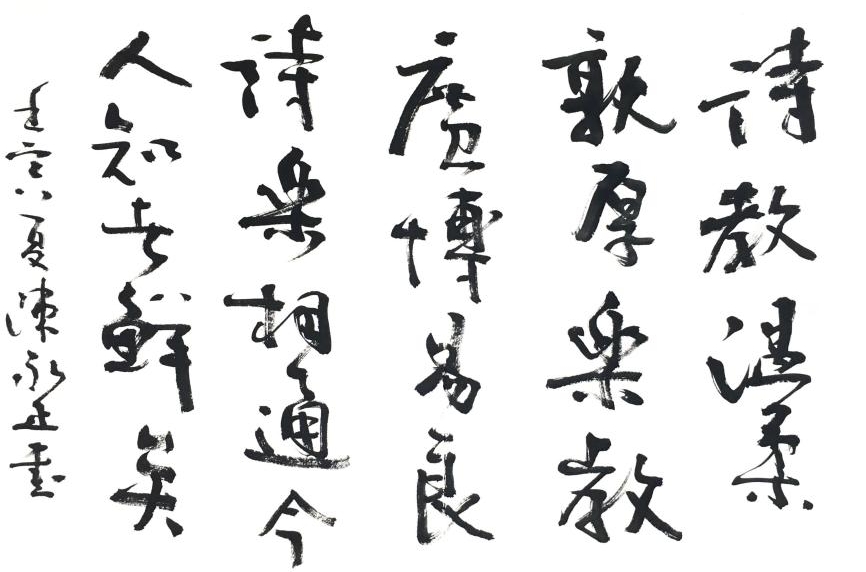 詩教溫柔
敦厚樂教
廣博易良
詩樂相通今
人知者鮮矣
壬寅夏陳永正書